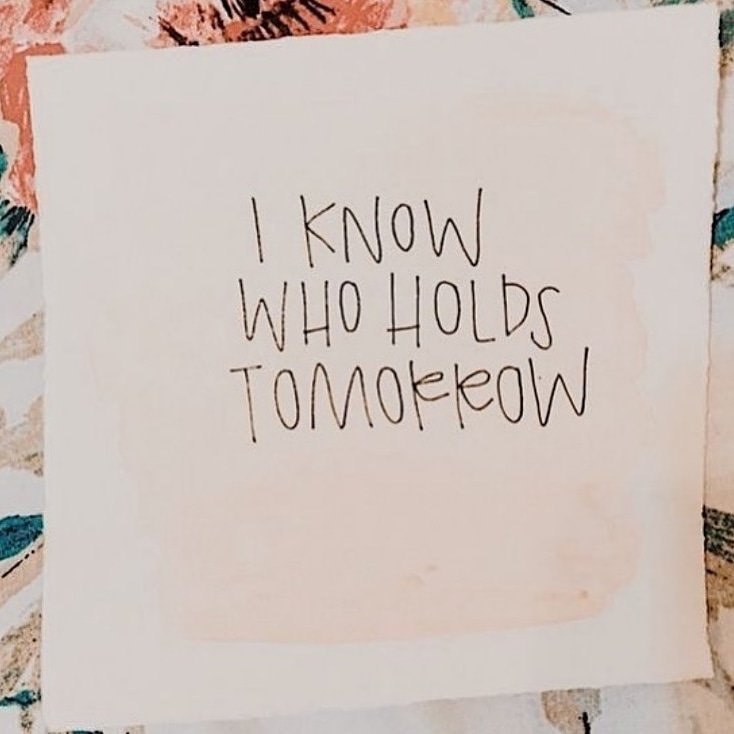 I KNOW
WHO HOLDS
TOMORROW